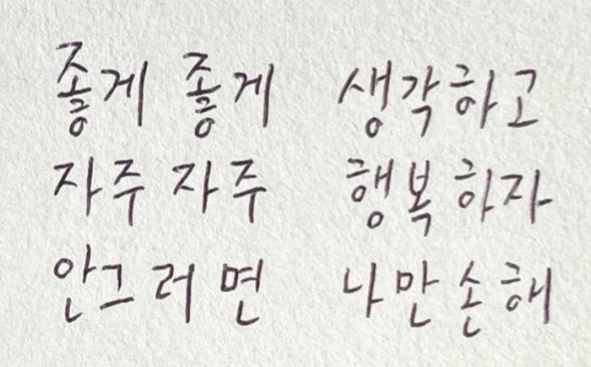 좋게 좋게 생각하고
자주 자주 행복하자
안그러면 나만손해